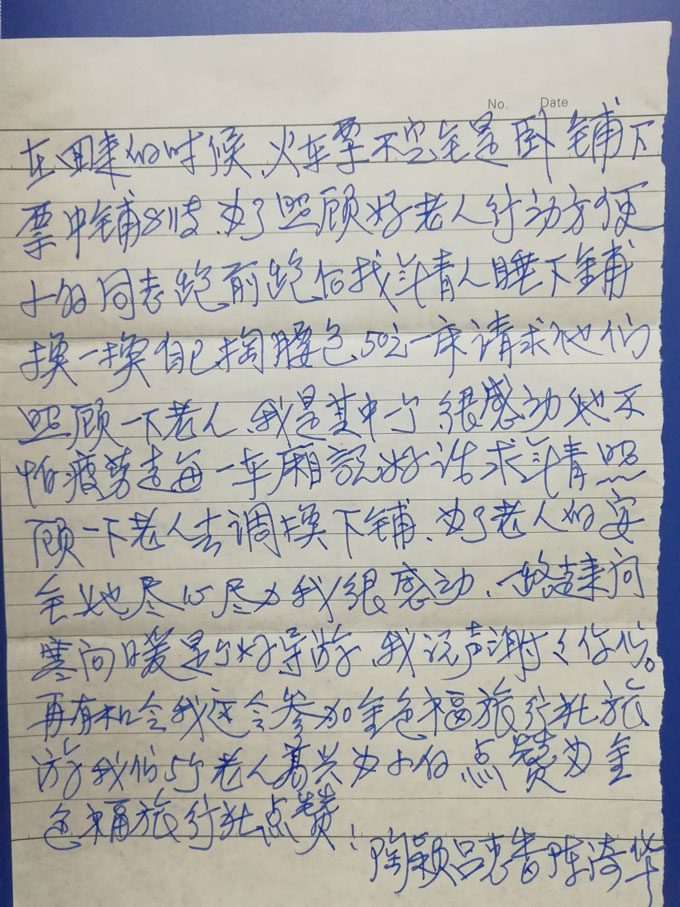 No. Date
在回来的时候、火车票不完全是卧铺下
票中铺 为了照顾好老人行动方便
小白同志跑前跑后找 人睡下铺
换一换自己掏腰包、50元一床请求他们
照顾一下老人、我是其中一个、很感动她不
怕疲劳走每一车厢说好话求 照
顾一下老人去调换下铺、为了老人的安
全她尽心尽力我很感动、一路走来问
寒问暖是个好导游、我说声谢谢你们。
再有机会我还会参加金色福旅行社旅
游我们5个老人高兴为小白点赞为金
色福旅行社点赞!
陶颖吕 陈漪华